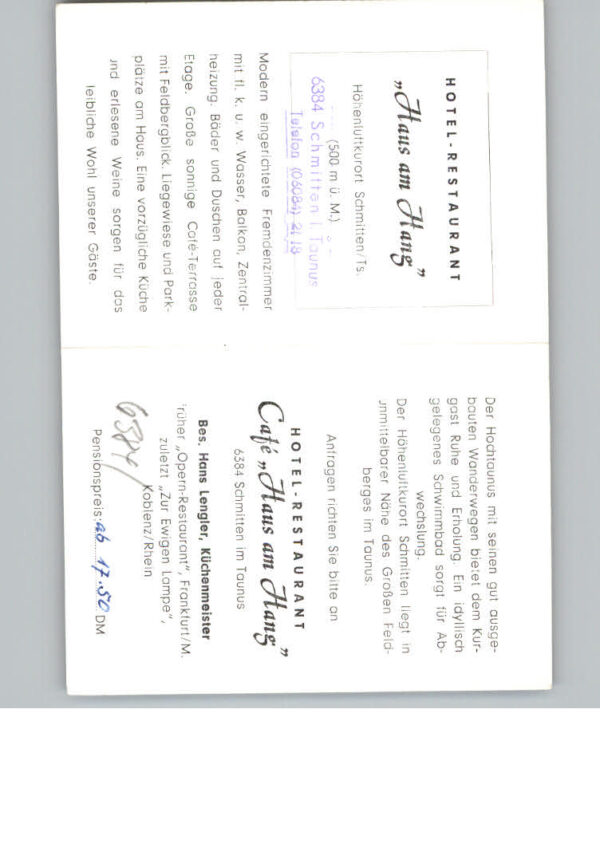 HOTEL-RESTAURANT
„Haus am Hang”
Höhenluftkurort Schmitten/Ts.
(500 m ü. M.)
6384 Schmitten i. Taunus
Telefon (06084) 21 18
Modern eingerichtete Fremdenzimmer
mit fl. k. u. w. Wasser, Balkon, Zentral-
heizung. Bäder und Duschen auf jeder
Etage. Große sonnige Café-Terrasse
mit Feldbergblick. Liegewiese und Park-
plätze am Haus. Eine vorzügliche Küche
und erlesene Weine sorgen für das
leibliche Wohl unserer Gäste.
Der Hochtaunus mit seinen gut ausge-
bauten Wanderwegen bietet dem Kur-
gast Ruhe und Erholung. Ein idyllisch
gelegenes Schwimmbad sorgt für Ab-
wechslung.
Der Höhenluftkurort Schmitten liegt in
unmittelbarer Nähe des Großen Feld-
berges im Taunus.
Anfragen richten Sie bitte an
HOTEL-RESTAURANT
Café „Haus am Hang”
6384 Schmitten im Taunus
Bes. Hans Lengler, Küchenmeister
früher „Opern-Restaurant”, Frankfurt/M.
zuletzt „Zur Ewigen Lampe”,
Koblenz/Rhein
6384/
Pensionspreis: ab 17.50 DM